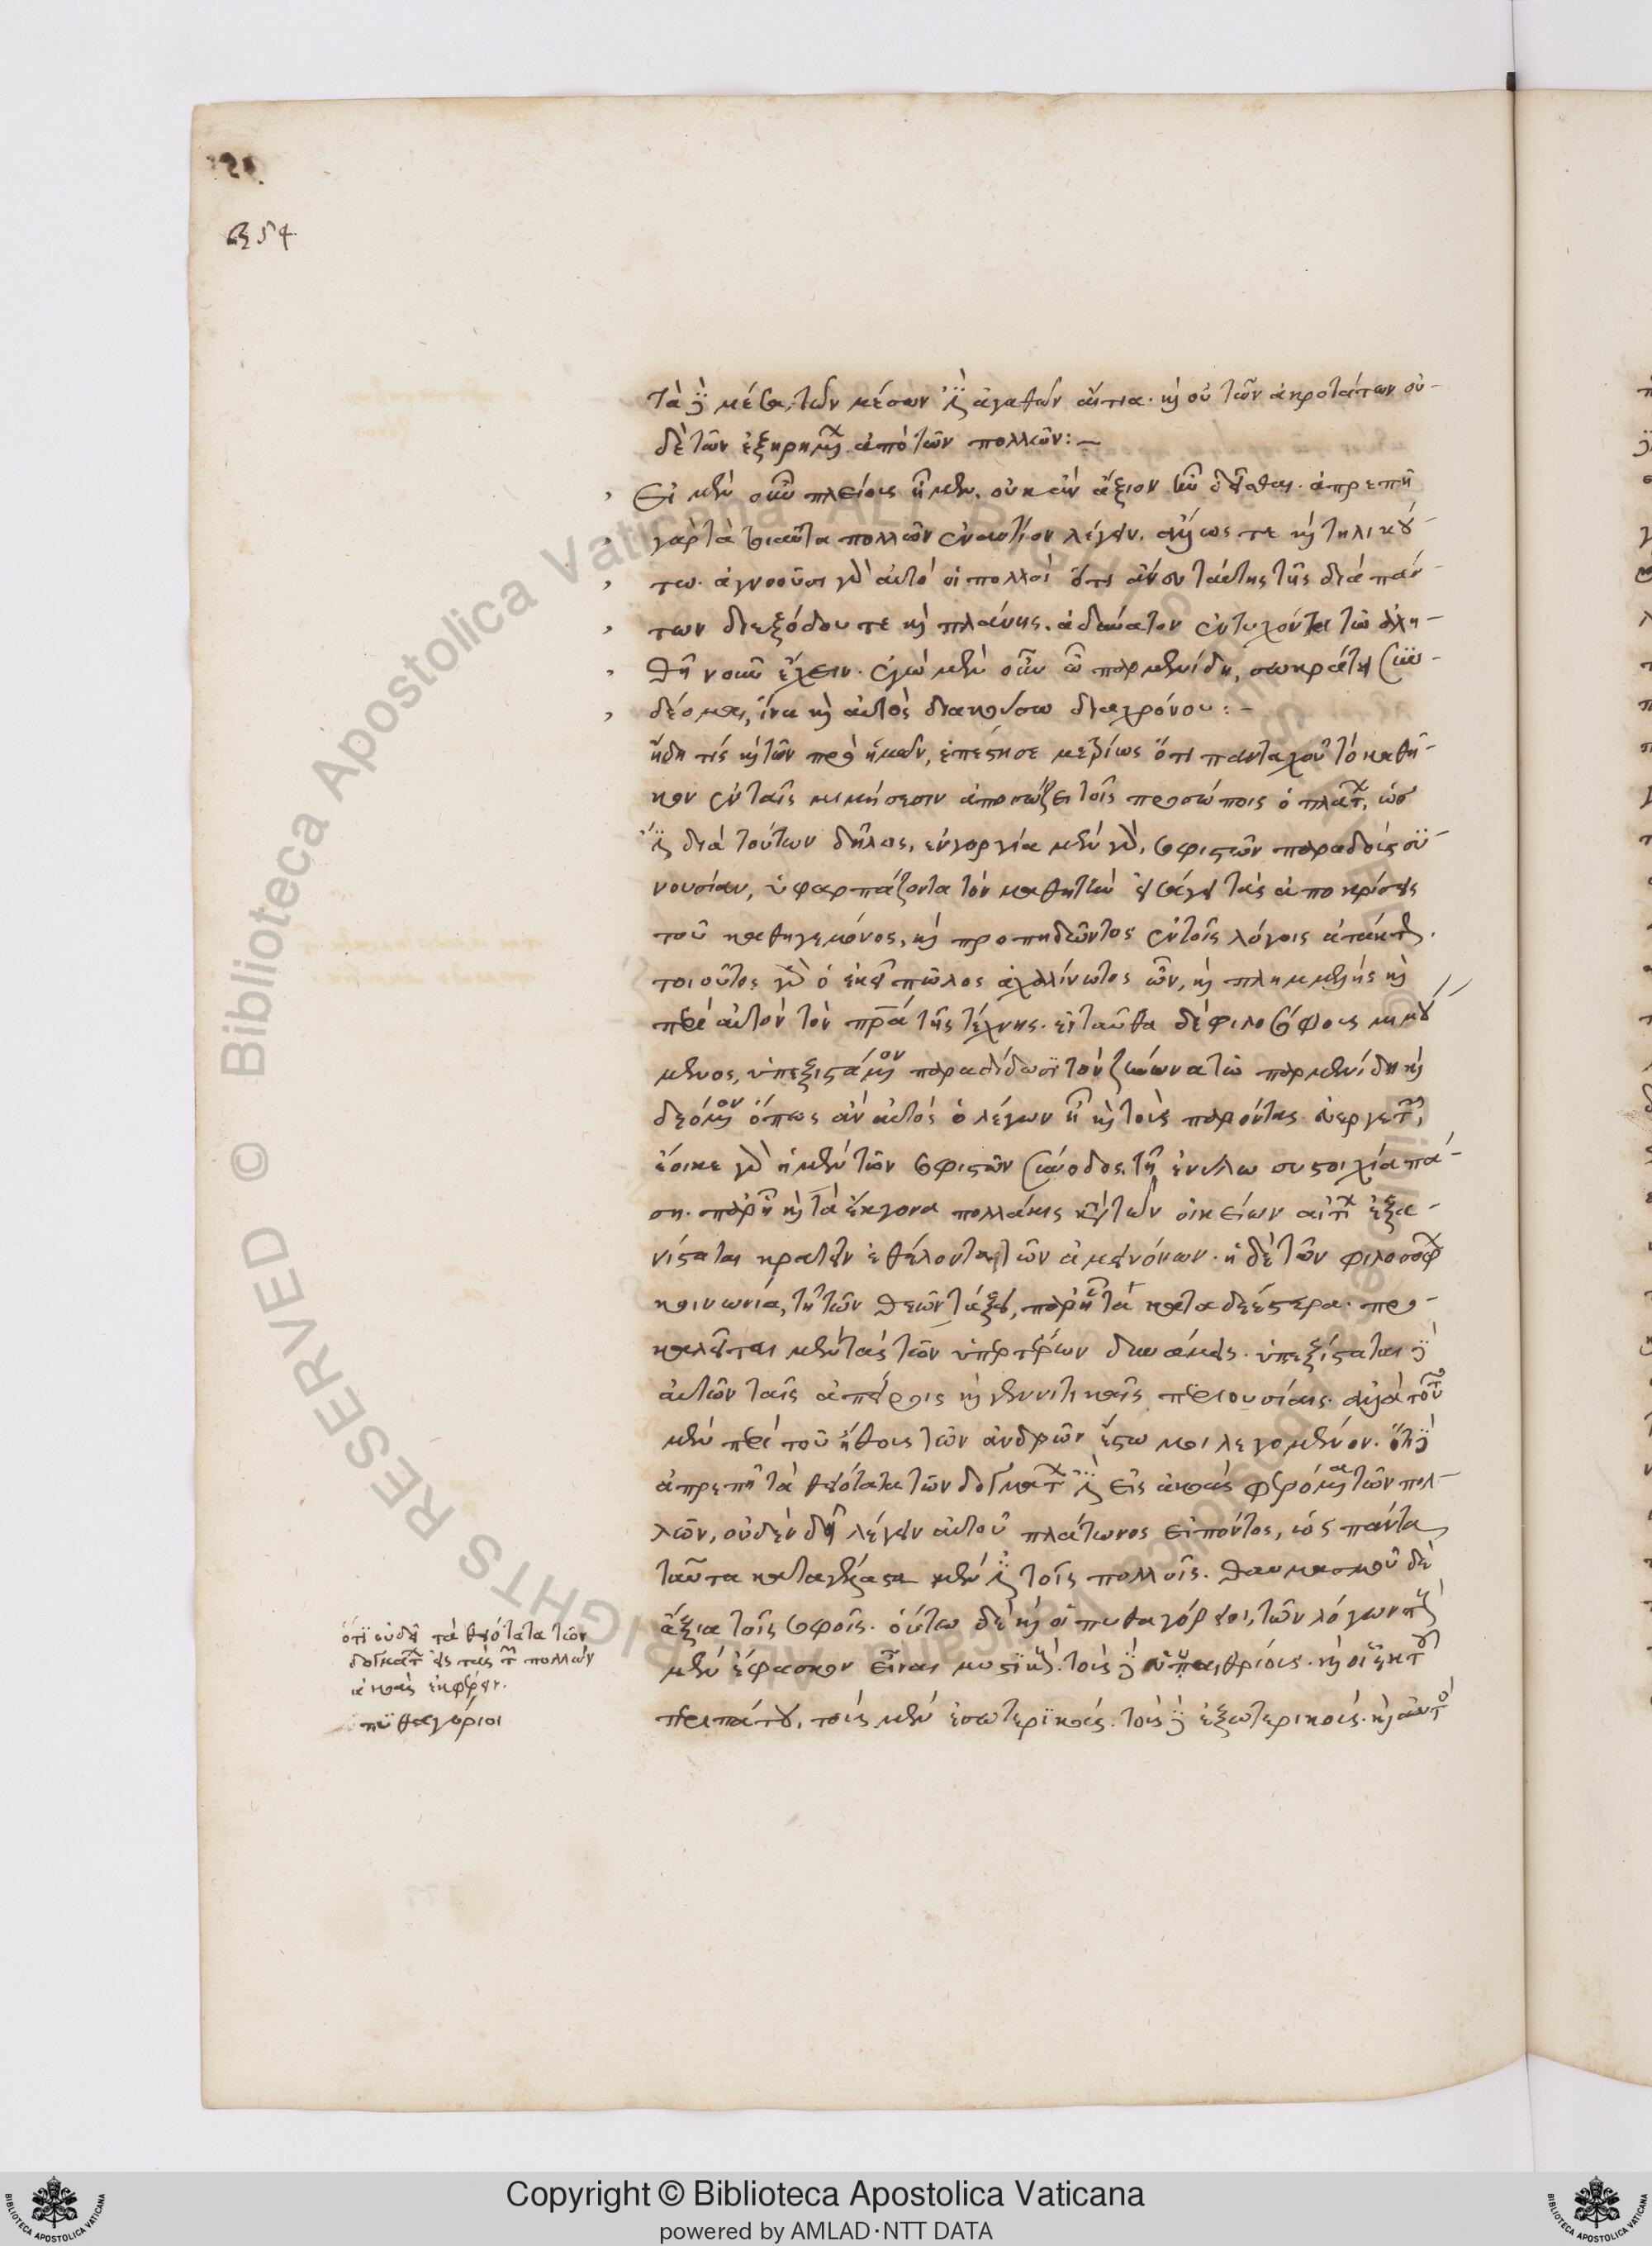 354
τὰ δὲ μέσα, τῶν μέσων ἐστὶν ἀγαθῶν αἴτια. καὶ οὐ τῶν ἀκροτάτων οὐ-
δὲ τῶν ἐξῃρημένων ἀπὸ τῶν πολλῶν:—
Εἰ μὲν οὖν πλείους ἦμεν, οὐκ ἂν ἄξιον ἦν δεῖσθαι. ἀπρεπῆ
γὰρ τὰ τοιαῦτα πολλῶν ἐναντίον λέγειν, ἄλλως τε καὶ τηλικού-
τω. ἀγνοοῦσι γὰρ αὐτὸ οἱ πολλοὶ ὅτι ἄνευ ταύτης τῆς διὰ πάν-
των διεξόδου τε καὶ πλάνης, ἀδύνατον ἐντυχόντα τῶ ἀλη-
θῆ νοῦν ἔχειν. ἐγὼ μὲν οὖν ὦ παρμενίδη, σωκράτει συν-
δέομαι, ἵνα καὶ αὐτὸς διακούσω διαχρόνου:—
ἤδη τίς καὶ τῶν πρὸ ἡμῶν, ἐπέστησε μετρίως ὅτι πανταχοῦ τὸ καθῆ-
κον ἐν ταῖς μιμήσεσιν ἀποσώζει τοῖς προσώποις ὁ πλάτων, ὡς
ἐστι διὰ τούτων δῆλος, ἐν γοργία μὲν γὰρ, σοφιστῶν παραδοὺς συ-
νουσίαν, ὑφαρπάζοντα τὸν μαθητὴν εἰσάγει τὰς ἀποκρίσεις
τοῦ καθηγεμόνος, καὶ προπηδῶντος ἐν τοῖς λόγοις ἀτάκτως.
τοιοῦτος γὰρ ὁ ἐκεῖ πῶλος ἀχαλίνωτος ὢν, καὶ πλημμελὴς καὶ
περὶ αὐτὸν τὸν πατέρα τῆς τέχνης. ἐνταῦθα δὲ φιλοσόφους μιμού
μενος, ὑπεξιστάμενον παραδίδωσι τὸν ζήνωνα τῶ παρμενίδη καὶ
δεόμενον ὅπως ἂν αὐτὸς ὁ λέγων ἦ καὶ τοὺς παρόντας εὐεργετῶν,
ἔοικε γὰρ ἡ μὲν τῶν σοφιστῶν σύνοδος, τῆ ἐνύλω συστοιχία πά-
ση. παρ' ᾗ καὶ τὰ ἔκγονα πολλάκις κατὰ τῶν οἰκείων αἰτίων ἐξα-
νίσταται κρατεῖν ἐθέλοντα τῶν ἀμεινόνων. ἡ δὲ τῶν φιλοσόφων
κοινωνία, τῆ τῶν θεῶν τάξει, παρ' ᾗ τὰ καταδεέστερα. προ-
καλεῖται μὲν τὰς τῶν ὑπερτέρων δυνάμεις. ὑπεξίσταται δὲ
αὐτῶν ταῖς ἀπείροις καὶ γεννητικαῖς περιουσίαις. ἀλλὰ τοῦτο
μὲν περὶ τοῦ ἤθους τῶν ἀνδρῶν ἔστω μοι λεγομένον. ὅτι δὲ
ἀπρεπῆ τὰ θειότατα τῶν δογμάτων ἐστὶν εἰς ἀκοὰς φερόμενα τῶν πολ-
λῶν, οὐδὲν δεῖ λέγειν αὐτοῦ πλάτωνος εἰπόντος, ὡς πάντα
ταῦτα καταγέλαστα μέν ἐστι τοῖς πολλοῖς. θαυμασμοῦ δὲ
ἄξια τοῖς σοφοῖς. οὕτω δὲ καὶ οἱ πυθαγόρειοι, τῶν λόγων τοὺς
μὲν ἔφασκον εἶναι μυστικούς. τοὺς δὲ ὑπαιθρίους. καὶ οἱ ἐκ τοῦ
περιπάτου, τοὺς μὲν ἐσωτερικούς. τοὺς δὲ ἐξωτερικούς. καὶ αὐτὸς
ὅτι οὐ δεῖ τὰ θειότατα τῶν
δογμάτων εἰς τὰς τῶν πολλῶν
ἀκοὰς ἐκφέρειν.
πυθαγόριοι
Biblioteca Apostolica Vaticana ALL RIGHTS RESERVED ©
Copyright © Biblioteca Apostolica Vaticana
powered by AMLAD·NTT DATA